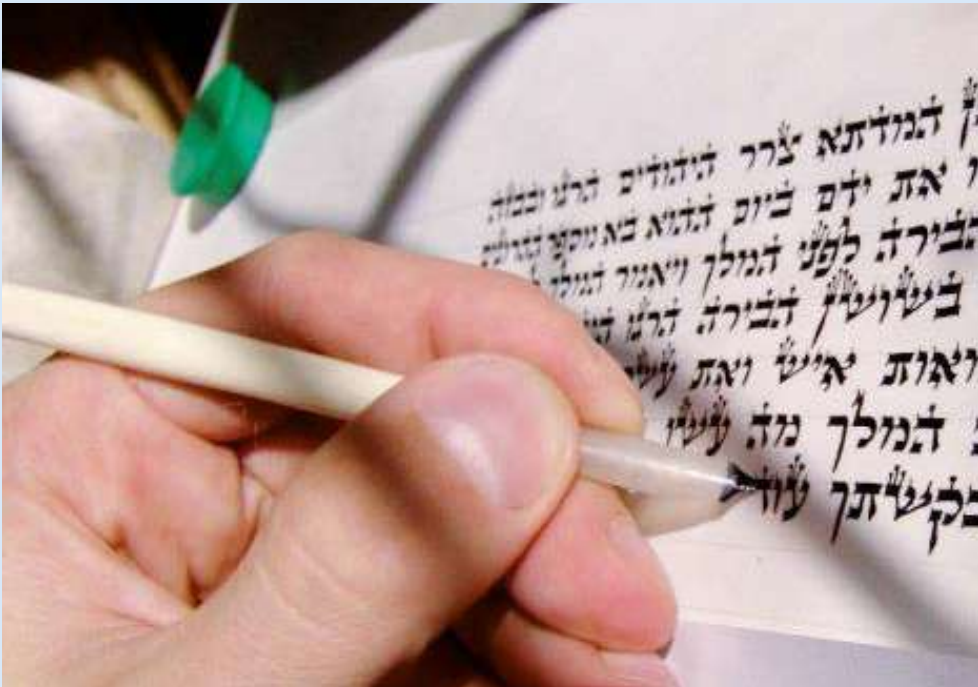 המדתא צרר היהודים הרגו ובבזה
את ידם ביום ההוא בא מספר ההרוגים
הבירה לפני המלך ויאמר המלך
בשושן הבירה הרגו
מאות איש ואת
המלך מה עשו
בקשתך עוד